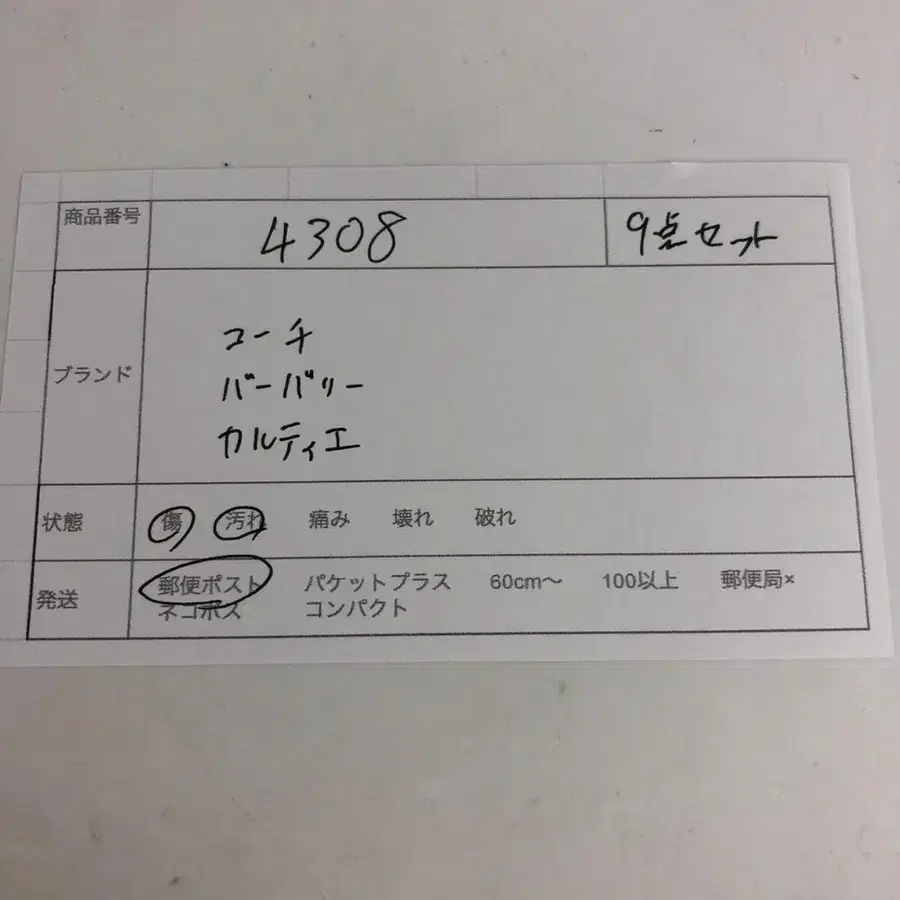 商品番号 4308 9点セット
コーチ
ブランド バーバリー
カルティエ
状態 傷 汚れ 痛み 壊れ 破れ
発送 郵便ポスト パケットプラス 60cm〜 100以上 郵便局×
ネコポス コンパクト